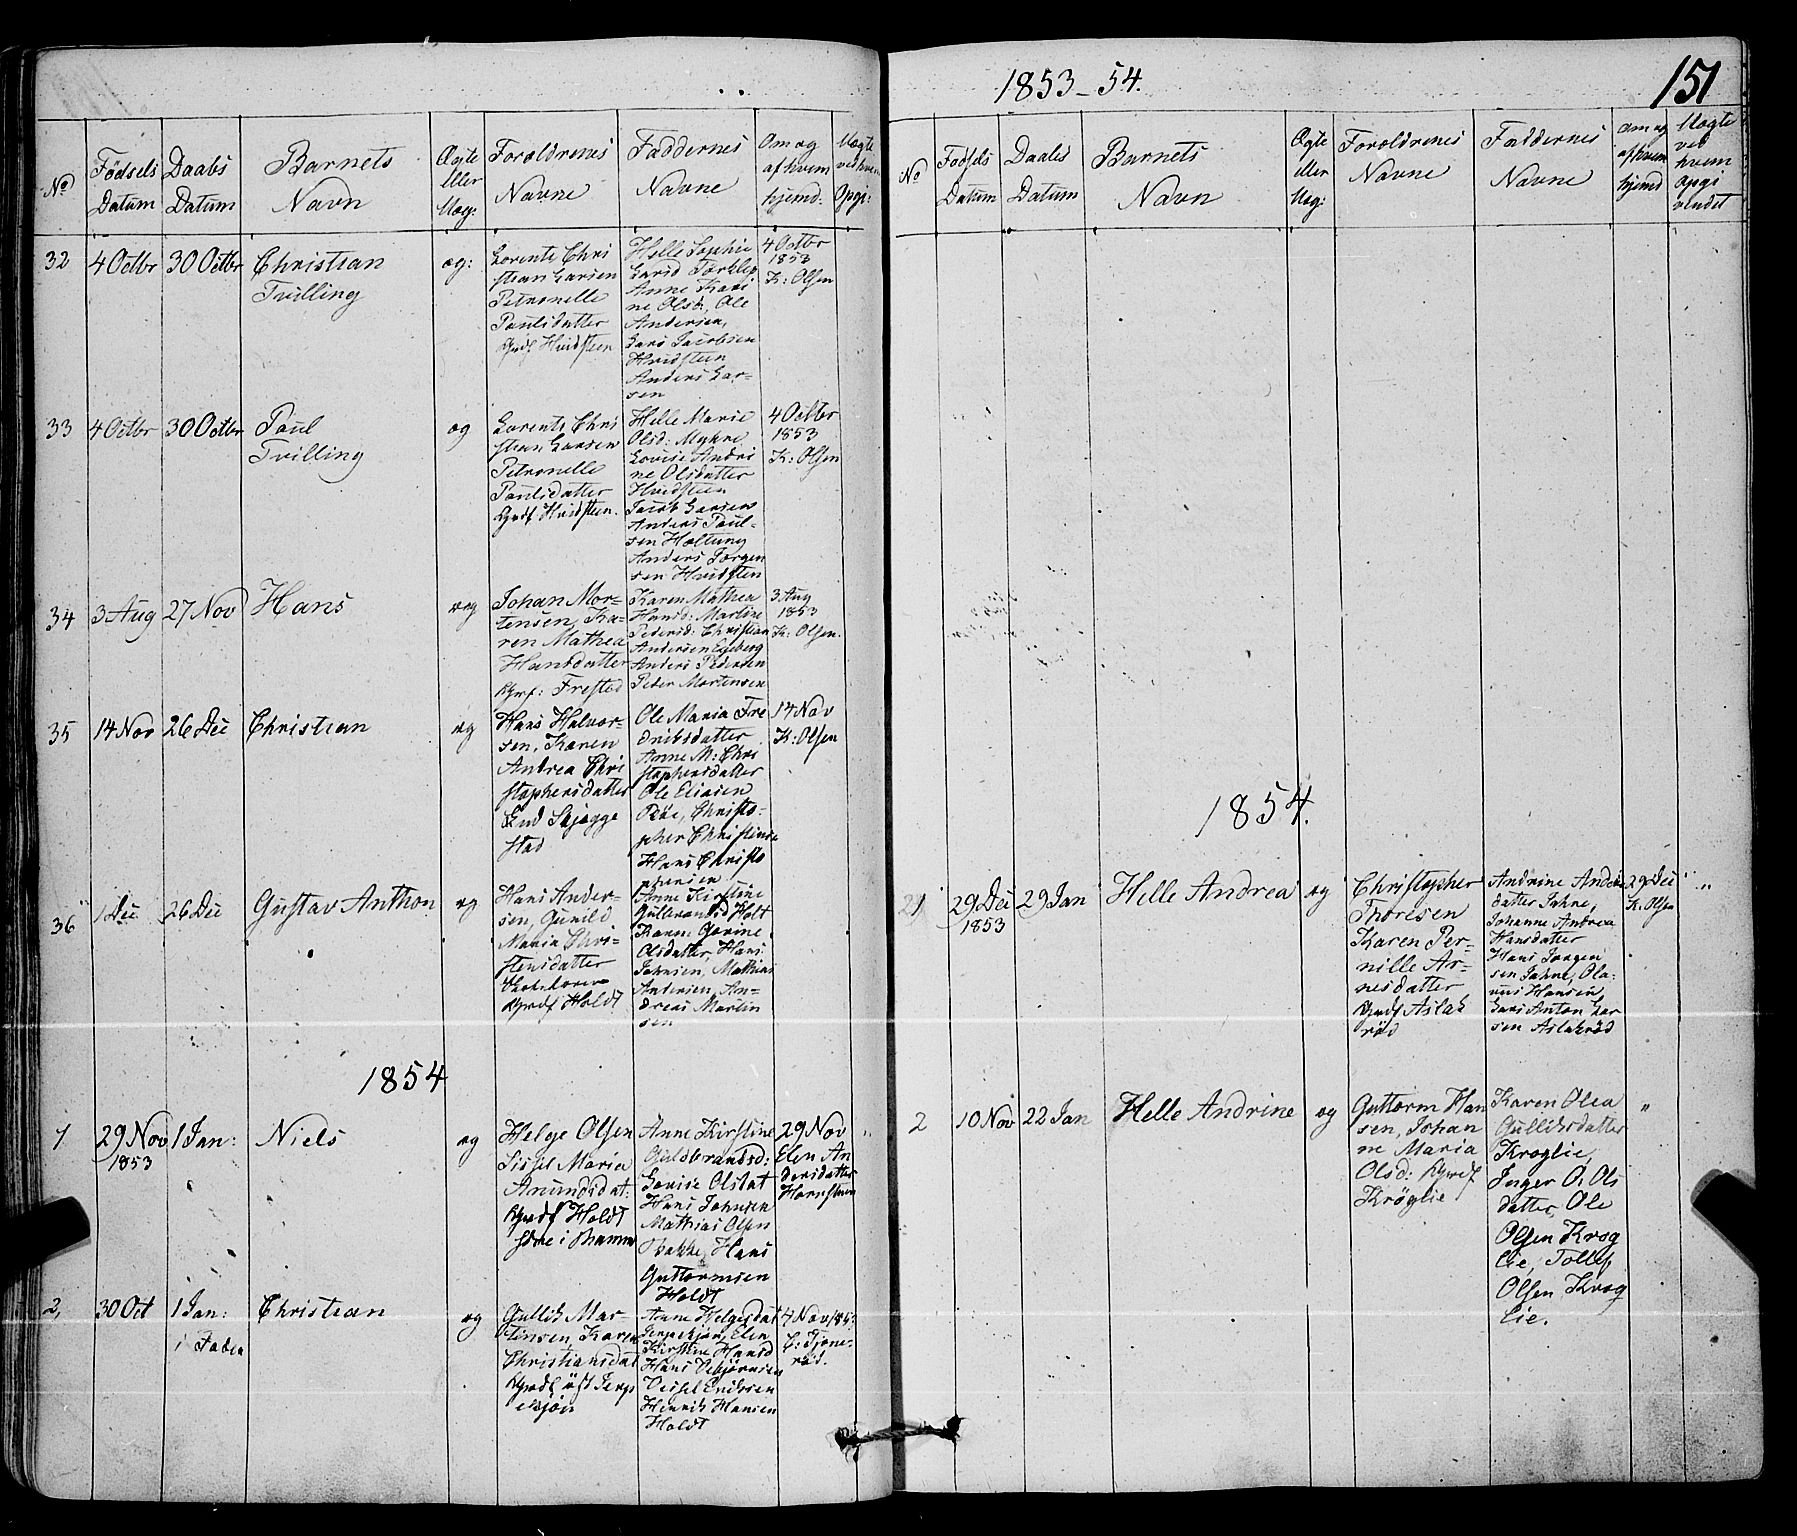 1853-54.
151
No
Fødsels Datum
Daabs Datum
Barnets Navn
Ægte Eller Uæg:
Forældrenes Navne
Faddernes Navne
Om og af hvem hjemd.
Uægte ved hvem Opgi:
32
4 Octbr
30 Octbr
Christian
Tvilling
æg:
Lorents Chri
stian Larsen
Petronelle
Paulsdatter
Hvidsteen
Helle Sophie
Larsd
Anne Kari
ne Olsd:, Ole
Andersen,
Lars Jacobsen
Hvidsteen
Anders Lar-
sen
4 Octbr
1853
K: Olsen
33
4 Octbr
30 Octbr
Paul
Tvilling
æg
Lorents Chri
stian Larsen
Petronelle
Paulsdatter
Hvidsteen.
Helle Marie
Olsd: Myhre
Lovise Andri
ne Olsdatter
Hvidsteen
Jacob Larsen
Anders Paul-
sen Holtung
Anders Jørgen
sen Hvidsten
4 Octbr
1853
K: Olsen
34
3 Aug
27 Nov
Hans
æg
Johan Mor-
tensen, Ka-
ren Mathea
Hansdatter
Frestad
Karen Mathea
Hansd: Martine
Pedersd: Christian
Andersen Egeberg
Anders Pedersen
Peder Mortensen
3 Aug
1853
K: Olsen.
35
14 Nov
26 Dec
Christian
æg
Hans Halvor-
sen, Karen
Andrea Chri
stophersdatter
Skjegge
stad
Ole Maria Fre
driksdatter
Anne M: Chri
stophersdatter
Ole Eliasen
Christo-
pher Christense
Hans Christo
phersen
14 Nov
K: Olsen
36
1 Dec
26 Dec
Gustav Anthon
æg
Hans Ander-
sen, Gunild
Maria Chri-
stensdatter
Holdt
Anne Kirstine
Gulbrandsd Holt
Karen Govine
Olsdatter, Hans
Johnsen, Mathias
Andersen, An-
dreas Martin
sen
1854
1
29 Nov
1853
1 Jan:
Niels
æg
Helge Olsen
Sissel Maria
Amundsdat:
Holdt
Anne Kirstine
Guldbrandsd:
Lovise Olsdat
Hans Johnsen
Mathias Olsen
Bakke, Hans
Guttormsen
Holdt
29 Nov
Elen An
dersdatter
Hornsteen
"
2,
30 Oct
1 Jan:
Christian
æg
Gullik Mar-
tinsen, Karen
Christiansdat
Anne Helgesdat
Elen
Kirstine Hansd
Hans
Henrik Hansen
Holdt
7 Nov 185
No
Fødsels Datum
Daabs Datum
Barnets Navn
Ægte Eller Uæg:
Forældrenes Navne
Faddernes Navne
Om og af hvem hjemd
Uægte ved hvem Opgi vendet
1854.
29 Dec
1853
29 Jan
Helle Andrea
æg
Christopher
Thoresen
Karen Per-
nille Ar-
nesdatter
Aslak
rød
Andrine Anders
datter Jahre,
Johanne Andrea
Hansdatter
Hans Jørgen
sen Jahre, Ola-
nus Hansen
Lars Anton Lar
sen Aslakrød
29 Dec
K: Olsen
"
2
10 Nov
22 Jan
Helle Andrine
æg
Guttorm Han
sen, Johan
ne Maria
Olsd:
Krøglie
Karen Olea
Gulliksdatter
Krøglie,
Inger O. Ols
datter, Ole
Olsen Krøg
lie, Tollef
Olsen Krøg
lie.
"